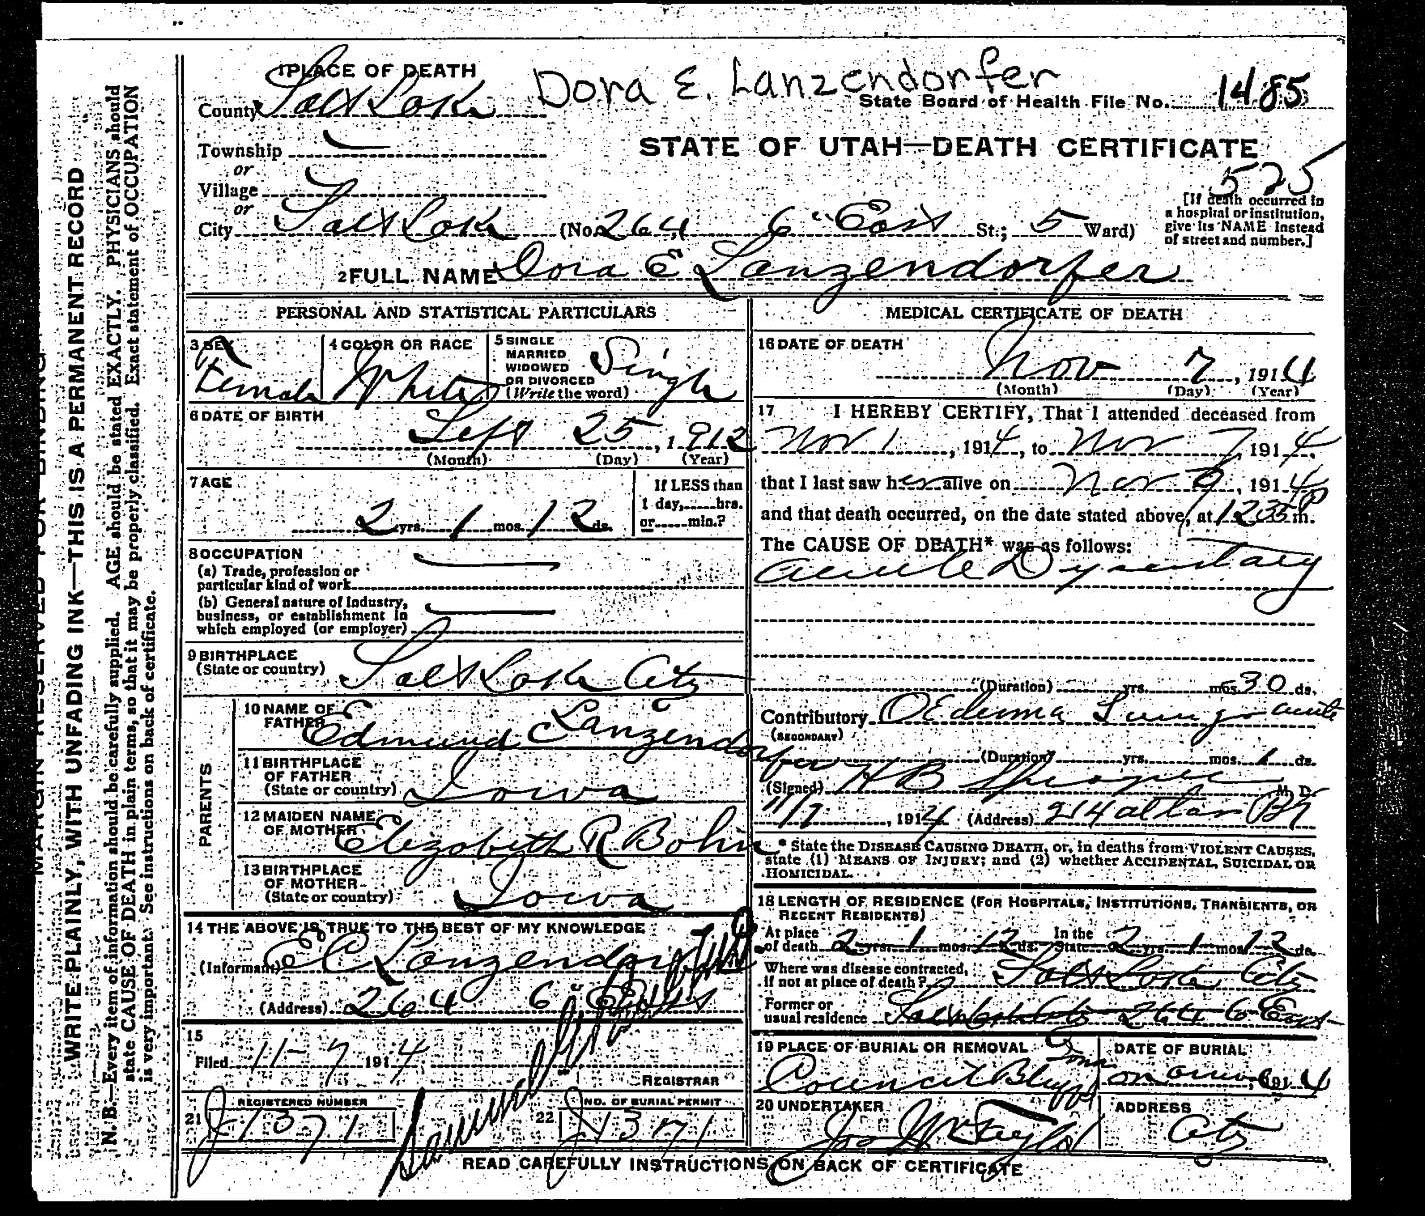 1 PLACE OF DEATH
Dora E. Lanzendorfer
County Salt Lake
State Board of Health File No. 1485
STATE OF UTAH—DEATH CERTIFICATE
Township
or
Village
525
or
City Salt Lake (No. 264 6" East St.; 5 Ward)
[If death occurred in
a hospital or institution,
give its NAME instead
of street and number.]
2 FULL NAME Dora E Lanzendorfer
PERSONAL AND STATISTICAL PARTICULARS
3 SEX Female
4 COLOR OR RACE White
5 SINGLE
MARRIED
WIDOWED
OR DIVORCED
(Write the word) Single
6 DATE OF BIRTH
Sept 25, 1912
(Month) (Day) (Year)
7 AGE
2 yrs. 1 mos. 12 ds.
If LESS than
1 day, hrs.
or min.?
8 OCCUPATION
(a) Trade, profession or
particular kind of work
(b) General nature of Industry,
business, or establishment in
which employed (or employer)
9 BIRTHPLACE
(State or country) Salt Lake City
PARENTS
10 NAME OF
FATHER Edmund C Lanzendorfer
11 BIRTHPLACE
OF FATHER
(State or country) Iowa
12 MAIDEN NAME
OF MOTHER Elizabeth R Bohn
13 BIRTHPLACE
OF MOTHER
(State or country) Iowa
14 THE ABOVE IS TRUE TO THE BEST OF MY KNOWLEDGE
(Informant) E C Lanzendorfer
(Address) 264 6" East
15
Filed 11-7 1914
REGISTRAR
21 REGISTERED NUMBER
J 1371
22 NO. OF BURIAL PERMIT
J 1371
MEDICAL CERTIFICATE OF DEATH
16 DATE OF DEATH
Nov 7, 1914
(Month) (Day) (Year)
17 I HEREBY CERTIFY, That I attended deceased from
Nov 1, 1914, to Nov 7, 1914,
that I last saw her alive on Nov 7, 1914
and that death occurred, on the date stated above, at 1235 P m.
The CAUSE OF DEATH* was as follows:
Acute Dysentary
(Duration) yrs. mos. 30 ds.
Contributory OEdema Lungs acute
(SECONDARY)
(Duration) yrs. mos. 1 ds.
(Signed) H B M. D.
11/7, 1914 (Address) 214
* State the DISEASE CAUSING DEATH, or, in deaths from VIOLENT CAUSES,
state (1) MEANS OF INJURY; and (2) whether ACCIDENTAL, SUICIDAL OR
HOMICIDAL.
18 LENGTH OF RESIDENCE (FOR HOSPITALS, INSTITUTIONS, TRANSIENTS, OR
RECENT RESIDENTS)
At place
of death 2 yrs. 1 mos. 12 ds. In the State 2 yrs. 1 mos. 12 ds.
Where was disease contracted,
if not at place of death? Salt Lake City
Former or
usual residence Salt Lake City 264 6 East
19 PLACE OF BURIAL OR REMOVAL
Council Bluffs Iowa
DATE OF BURIAL
on 1914
20 UNDERTAKER
Jos Wm Taylor
ADDRESS
City
READ CAREFULLY INSTRUCTIONS ON BACK OF CERTIFICATE
MARGIN RESERVED FOR BINDING
WRITE PLAINLY, WITH UNFADING INK—THIS IS A PERMANENT RECORD
N. B.—Every item of information should be carefully supplied. AGE should be stated EXACTLY. PHYSICIANS should
state CAUSE OF DEATH in plain terms, so that it may be properly classified. Exact statement of OCCUPATION
is very important. See instructions on back of certificate.